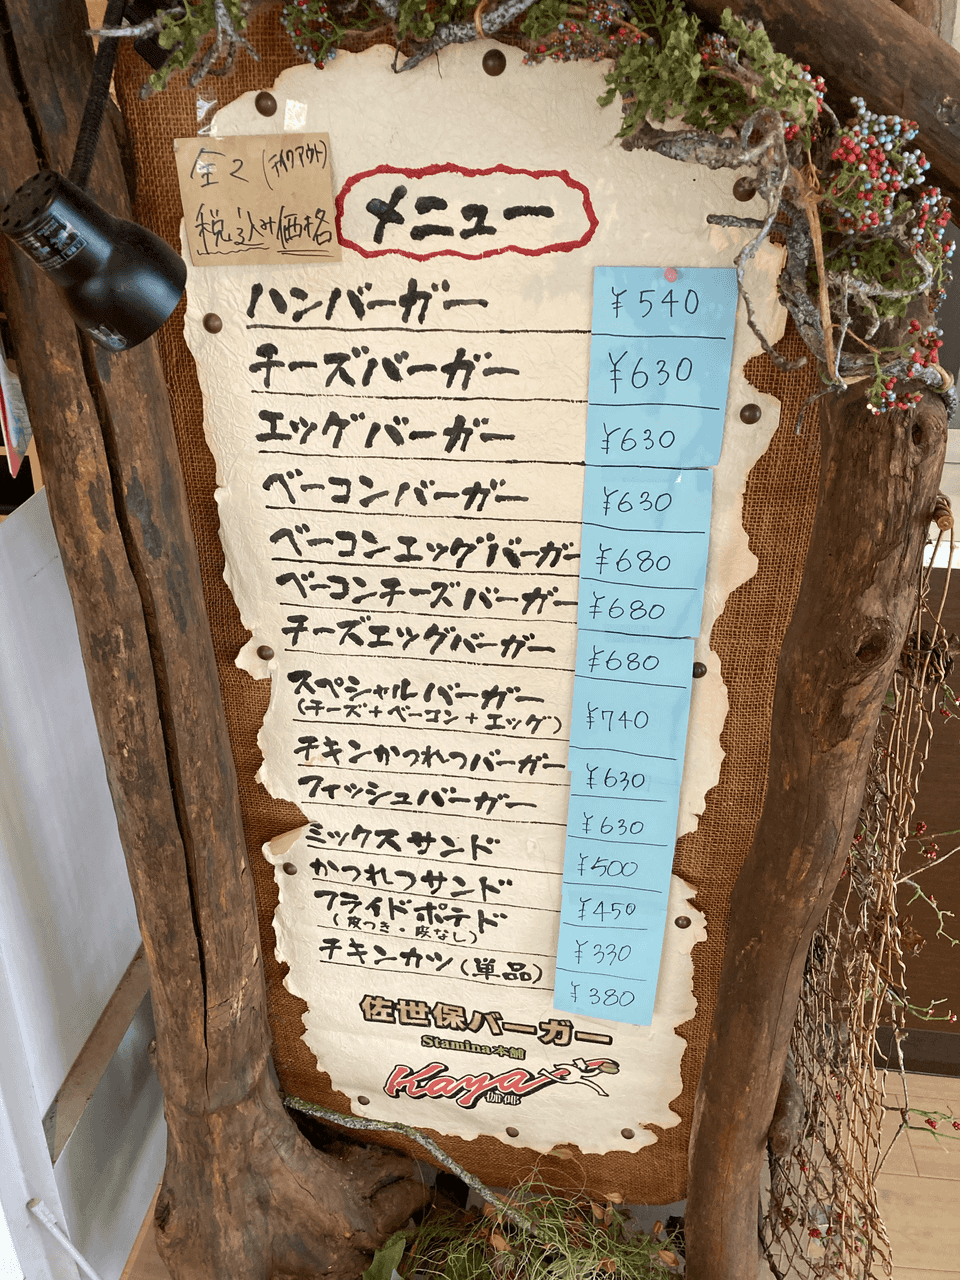 全て(テイクアウト)
税込み価格
メニュー
ハンバーガー ¥540
チーズバーガー ¥630
エッグバーガー ¥630
ベーコンバーガー ¥630
ベーコンエッグバーガー ¥680
ベーコンチーズバーガー ¥680
チーズエッグバーガー ¥680
スペシャルバーガー ¥740
(チーズ+ベーコン+エッグ)
チキンかつれつバーガー ¥630
フィッシュバーガー ¥630
ミックスサンド ¥500
かつれつサンド ¥450
フライドポテド ¥330
(皮つき・皮なし)
チキンカツ(単品) ¥380
佐世保バーガー
Stamina本舗
Kaya
伽耶